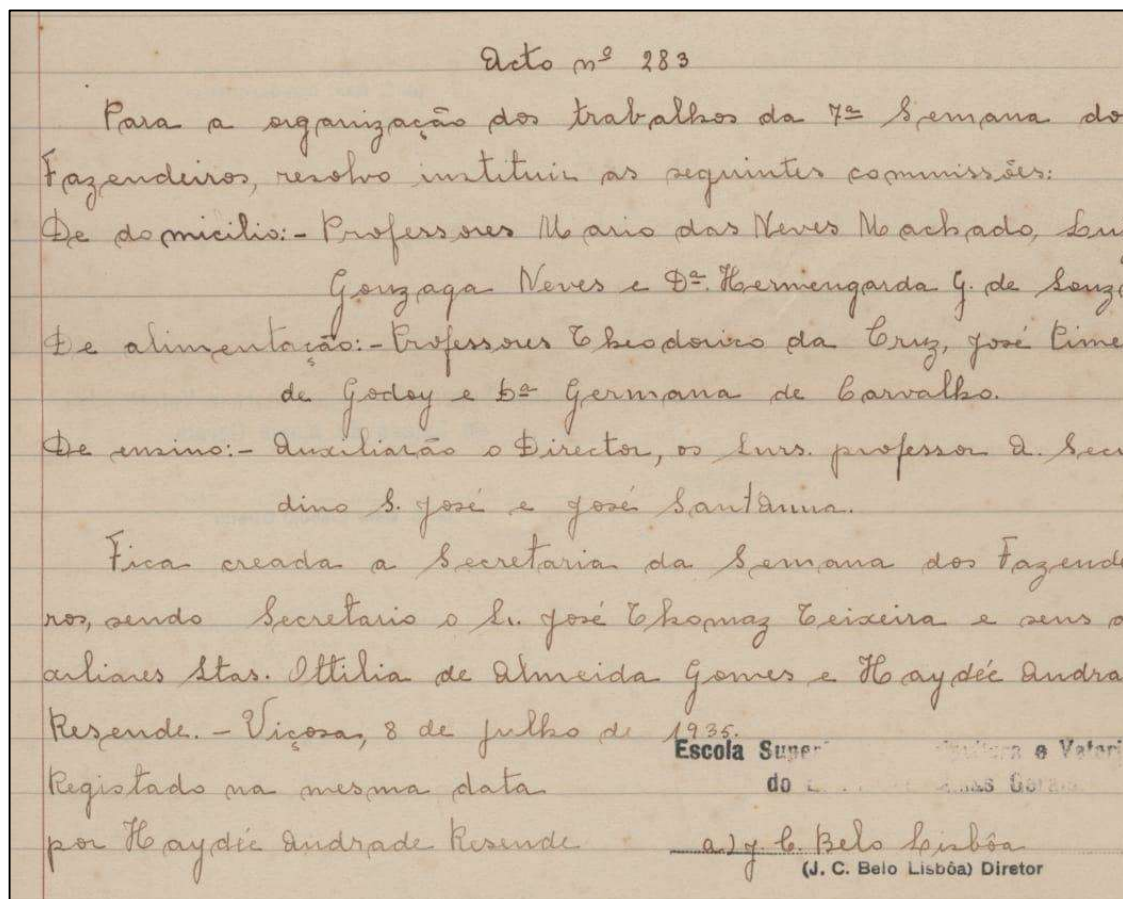 Acto nº 283
Para a organização dos trabalhos da 7ª Semana do
Fazendeiros, resolvo instituir as seguintes commissões:
De domicilio:- Professores Mario das Neves Machado, Lui
Gonzaga Neves e Dª. Hermengarda G. de Souz
De alimentação:- Professores Theodorico da Cruz, José Pime
de Godoy e Dª Germana de Carvalho.
De ensino:- Auxiliarão o Director, os Snrs. professor A. Secu
dino S. José e José Sant'Anna.
Fica creada a Secretaria da Semana dos Fazende
ros, sendo Secretario o Sr. José Thomaz Teixeira e seus a
xiliares Stas. Ottilia de Almeida Gomes e Haydée Andra
Resende. - Viçosa, 8 de julho de 1935.
Escola Super e Veteri
do as Gerais
Registado na mesma data
por Haydée Andrade Resende
a) J. C. Belo Lisbôa
(J. C. Belo Lisbôa) Diretor